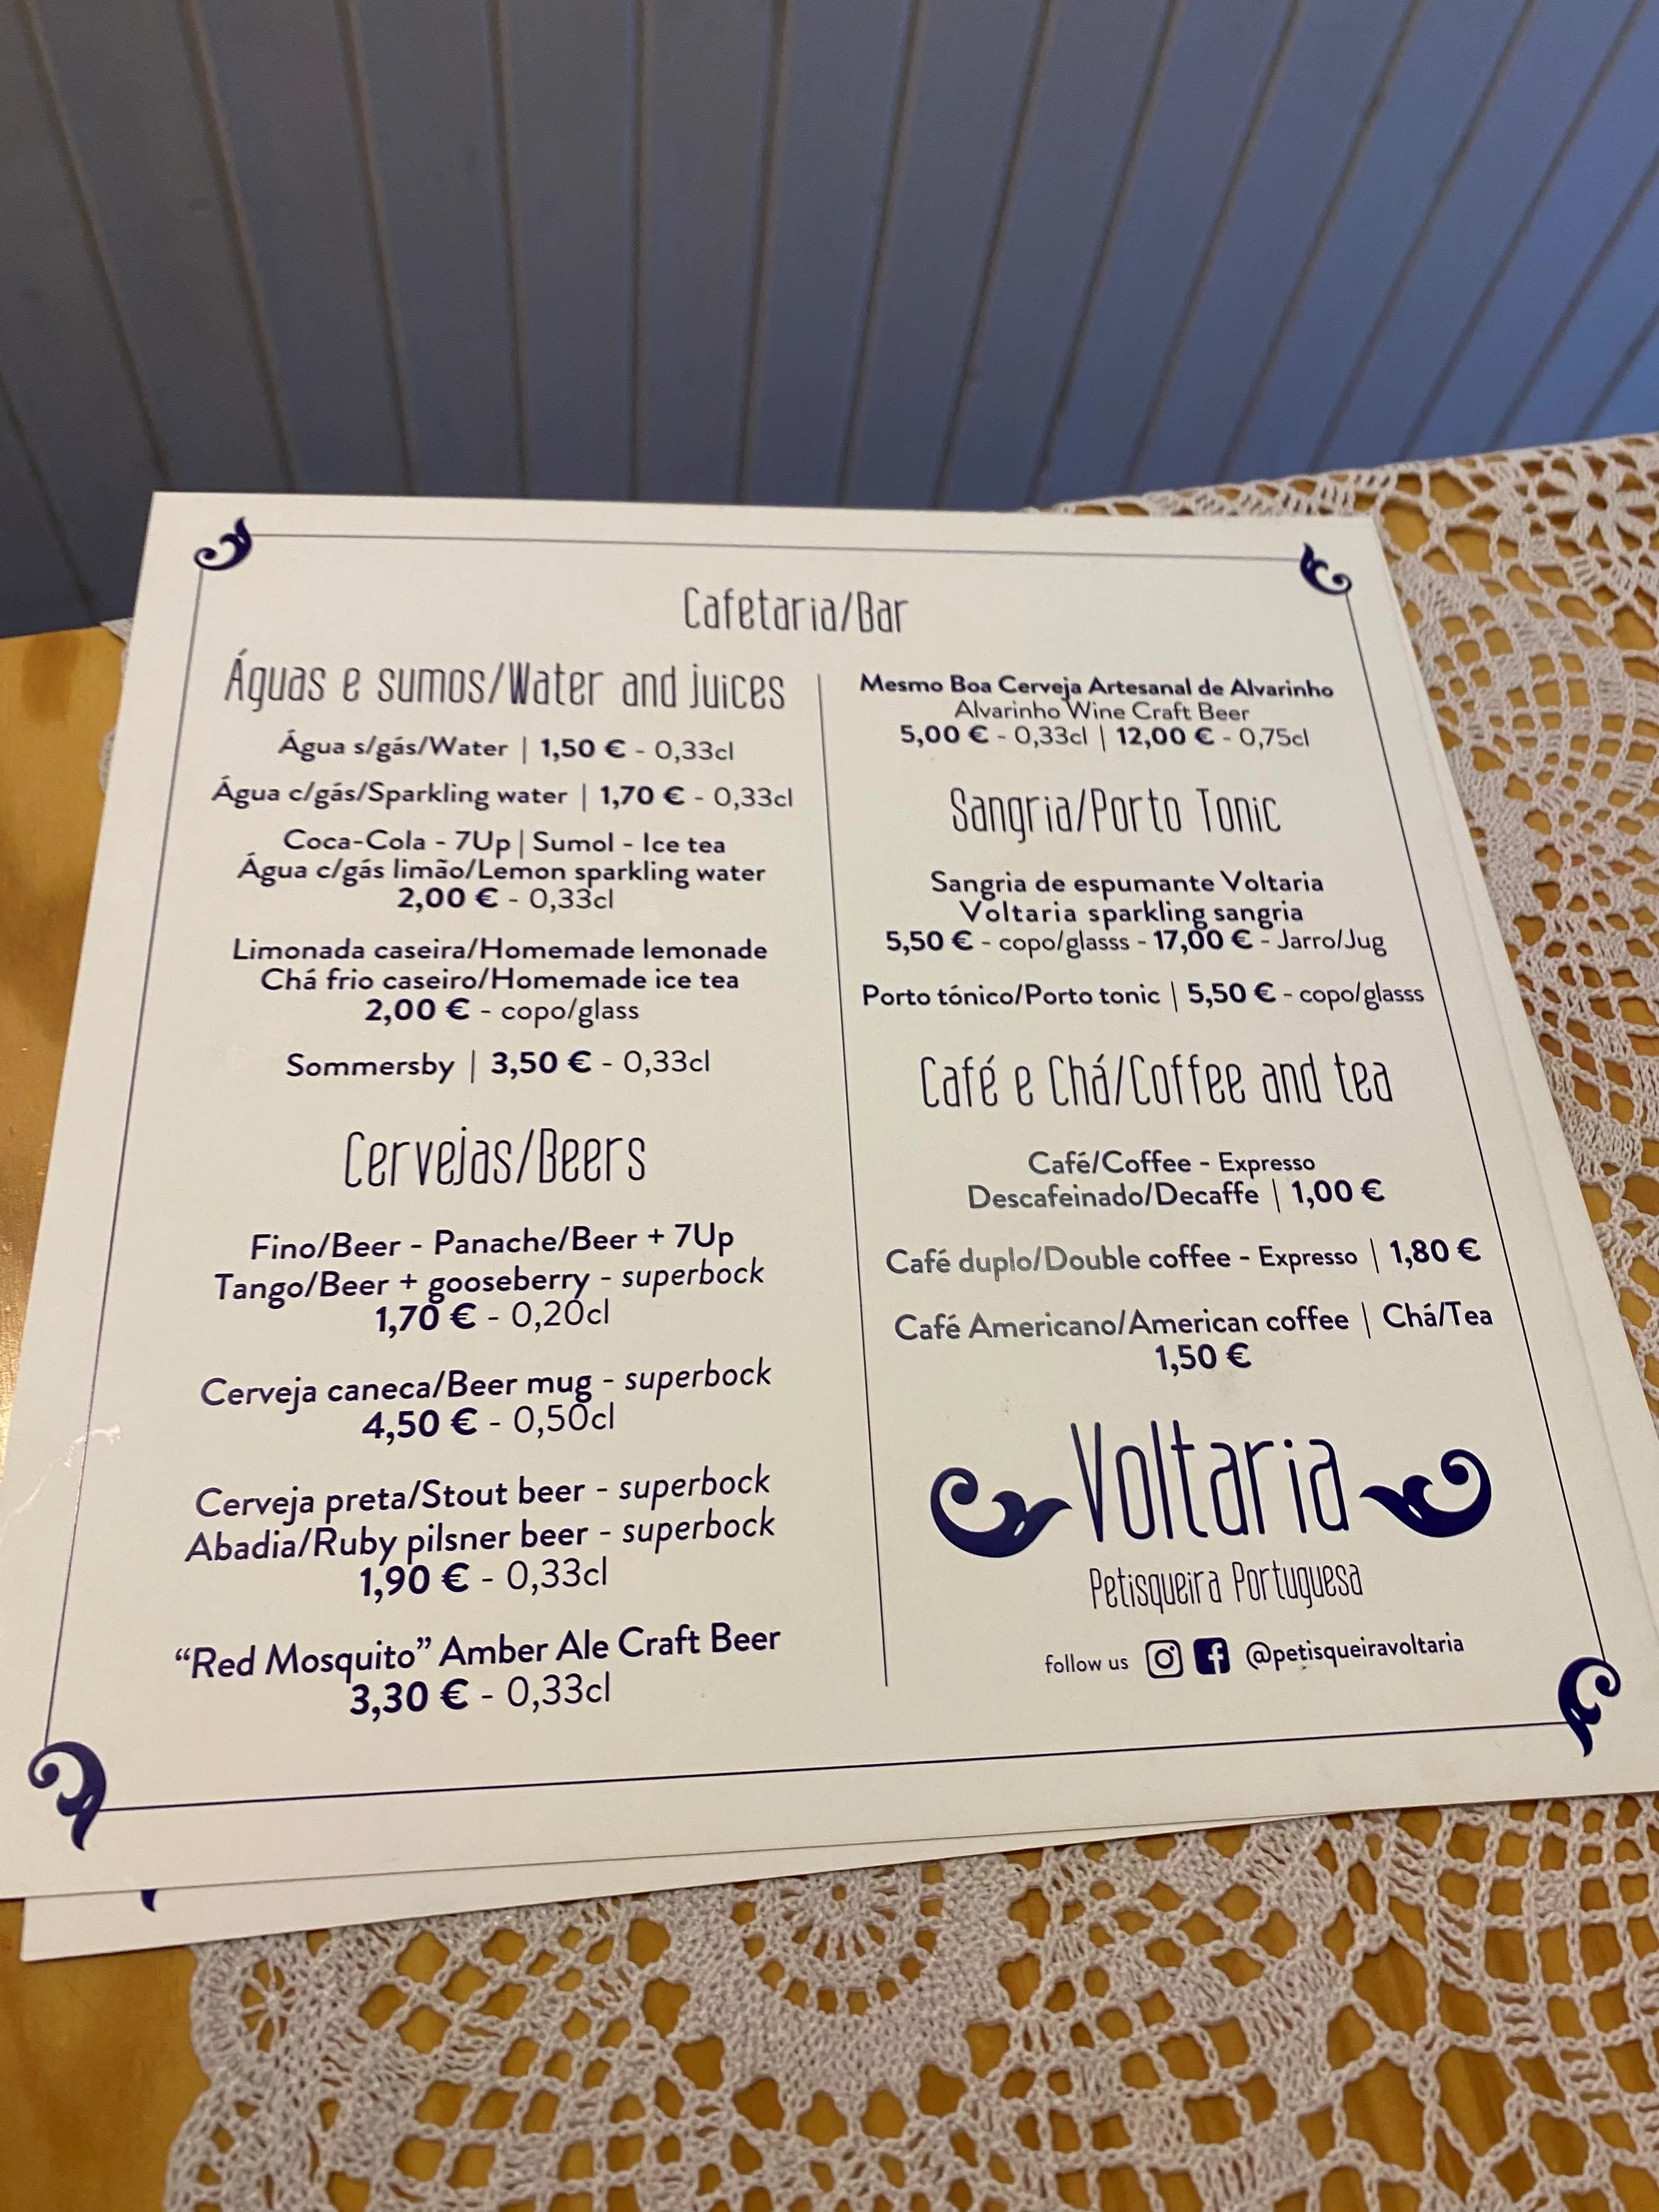 Cafetaria/Bar
Águas e sumos/Water and juices
Água s/gás/Water | 1,50 € - 0,33cl
Água c/gás/Sparkling water | 1,70 € - 0,33cl
Coca-Cola - 7Up | Sumol - Ice tea
Água c/gás limão/Lemon sparkling water
2,00 € - 0,33cl
Limonada caseira/Homemade lemonade
Chá frio caseiro/Homemade ice tea
2,00 € - copo/glass
Sommersby | 3,50 € - 0,33cl
Cervejas/Beers
Fino/Beer - Panache/Beer + 7Up
Tango/Beer + gooseberry - superbock
1,70 € - 0,20cl
Cerveja caneca/Beer mug - superbock
4,50 € - 0,50cl
Cerveja preta/Stout beer - superbock
Abadia/Ruby pilsner beer - superbock
1,90 € - 0,33cl
“Red Mosquito” Amber Ale Craft Beer
3,30 € - 0,33cl
Mesmo Boa Cerveja Artesanal de Alvarinho
Alvarinho Wine Craft Beer
5,00 € - 0,33cl | 12,00 € - 0,75cl
Sangria/Porto Tonic
Sangria de espumante Voltaria
Voltaria sparkling sangria
5,50 € - copo/glasss - 17,00 € - Jarro/Jug
Porto tónico/Porto tonic | 5,50 € - copo/glasss
Café e Chá/Coffee and tea
Café/Coffee - Expresso
Descafeinado/Decaffe | 1,00 €
Café duplo/Double coffee - Expresso | 1,80 €
Café Americano/American coffee | Chá/Tea
1,50 €
Voltaria
Petisqueira Portuguesa
follow us @petisqueiravoltaria